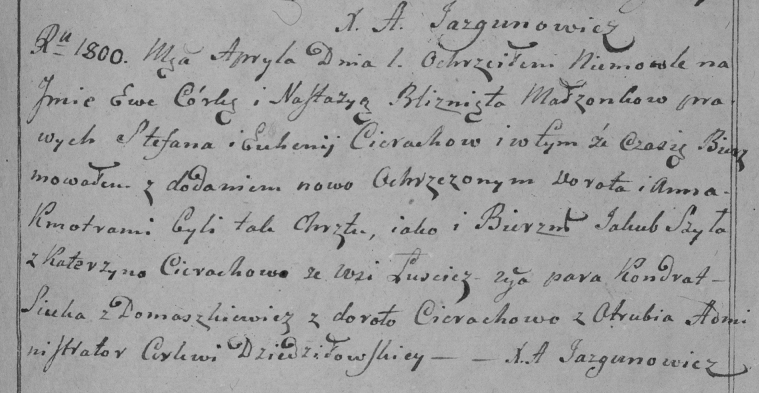 X. A. Jazgunowicz
Ru 1800. Mca Apryla Dnia 1. Ochrzciłem Niemowle na
Jmie Ewe Córkę i Nastazyą Bliznięta Małzonkow pra-
wych Stefana i Euhenij Cierachow i w tym że Czasię Bierz
mowałem z dodaniem nowo Ochrzczonym Dorota i Anna.
Kmotrami byli tak Chrztu, iako i Bierzm Jakub Szyła
z Katerzyno Cierachowo ze Wsi para Kondrat
Siuha z Domaszkiewicz z doroto Cierachowo z Otrubia Admi
nistrator Cerkwi Dziedziłowskiey — — X. A Jazgunowicz